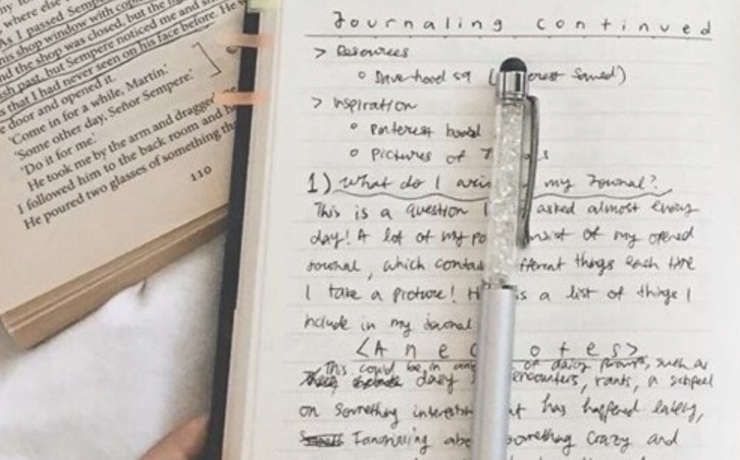 where else
As I passed Sempe
his shop window with copi
nd the shop was closed, but the lig
sh past, but Sempere noticed me and s
s that I had never seen on his face before. He
e door and opened it.
'Come in for a while, Martín.'
'Some other day, Señor Sempere.'
'Do it for me.'
He took me by the arm and dragged
I followed him to the back room and h
He poured two glasses of something tha
110
Journaling continued
> Resources
> Inspiration
o Pinterest board
o Pictures of
1) What do I in my Journal?
This is a question I asked almost every
day! A lot of my po of my opened
journal, which contai fferent things each time
I take a picture! H is a list of things I
include in my journal
<Anec otes>
This could be in any of daily, such as
daily encounters, rants, a
on something interesti has happened lately,
abo something crazy and